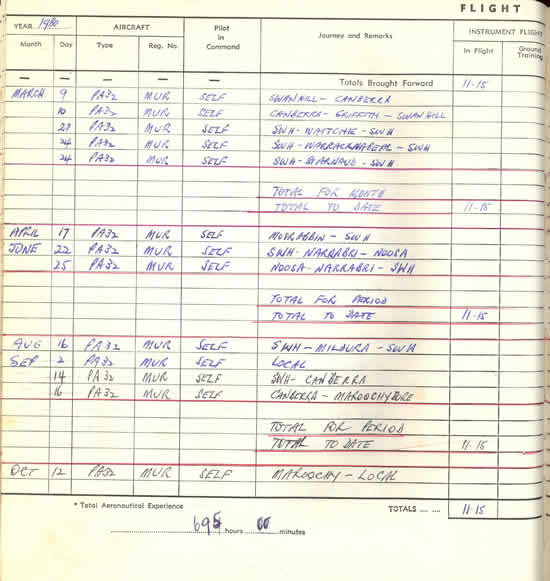 FLIGHT
YEAR 1980 AIRCRAFT Pilot in Command Journey and Remarks INSTRUMENT FLIGHT
Month Day Type Reg. No. In Flight Ground Training
— — — — — Totals Brought Forward 11-15
MARCH 9 PA32 MUR SELF SWAN HILL - CANBERRA
10 PA32 MUR SELF CANBERRA - GRIFFITH - SWAN HILL
23 PA32 MUR SELF SWH - WAITCHIE - SWH
24 PA32 MUR SELF SWH - WARRACKNABEAL - SWH
24 PA32 MUR SELF SWH - STARNAUD - SWH
TOTAL FOR MONTH
TOTAL TO DATE 11-15
APRIL 17 PA32 MUR SELF MOORABBIN - SWH
JUNE 22 PA32 MUR SELF SWH - NARRABRI - NOOSA
25 PA32 MUR SELF NOOSA - NARRABRI - SWH
TOTAL FOR PERIOD
TOTAL TO DATE 11-15
AUG 16 PA32 MUR SELF SWH - MILDURA - SWH
SEP 2 PA32 MUR SELF LOCAL
14 PA32 MUR SELF SWH - CANBERRA
16 PA32 MUR SELF CANBERRA - MAROOCHYDORE
TOTAL FOR PERIOD
TOTAL TO DATE 11-15
OCT 12 PA32 MUR SELF MAROOCHY - LOCAL
* Total Aeronautical Experience TOTALS .... .... 11-15
695 hours 00 minutes